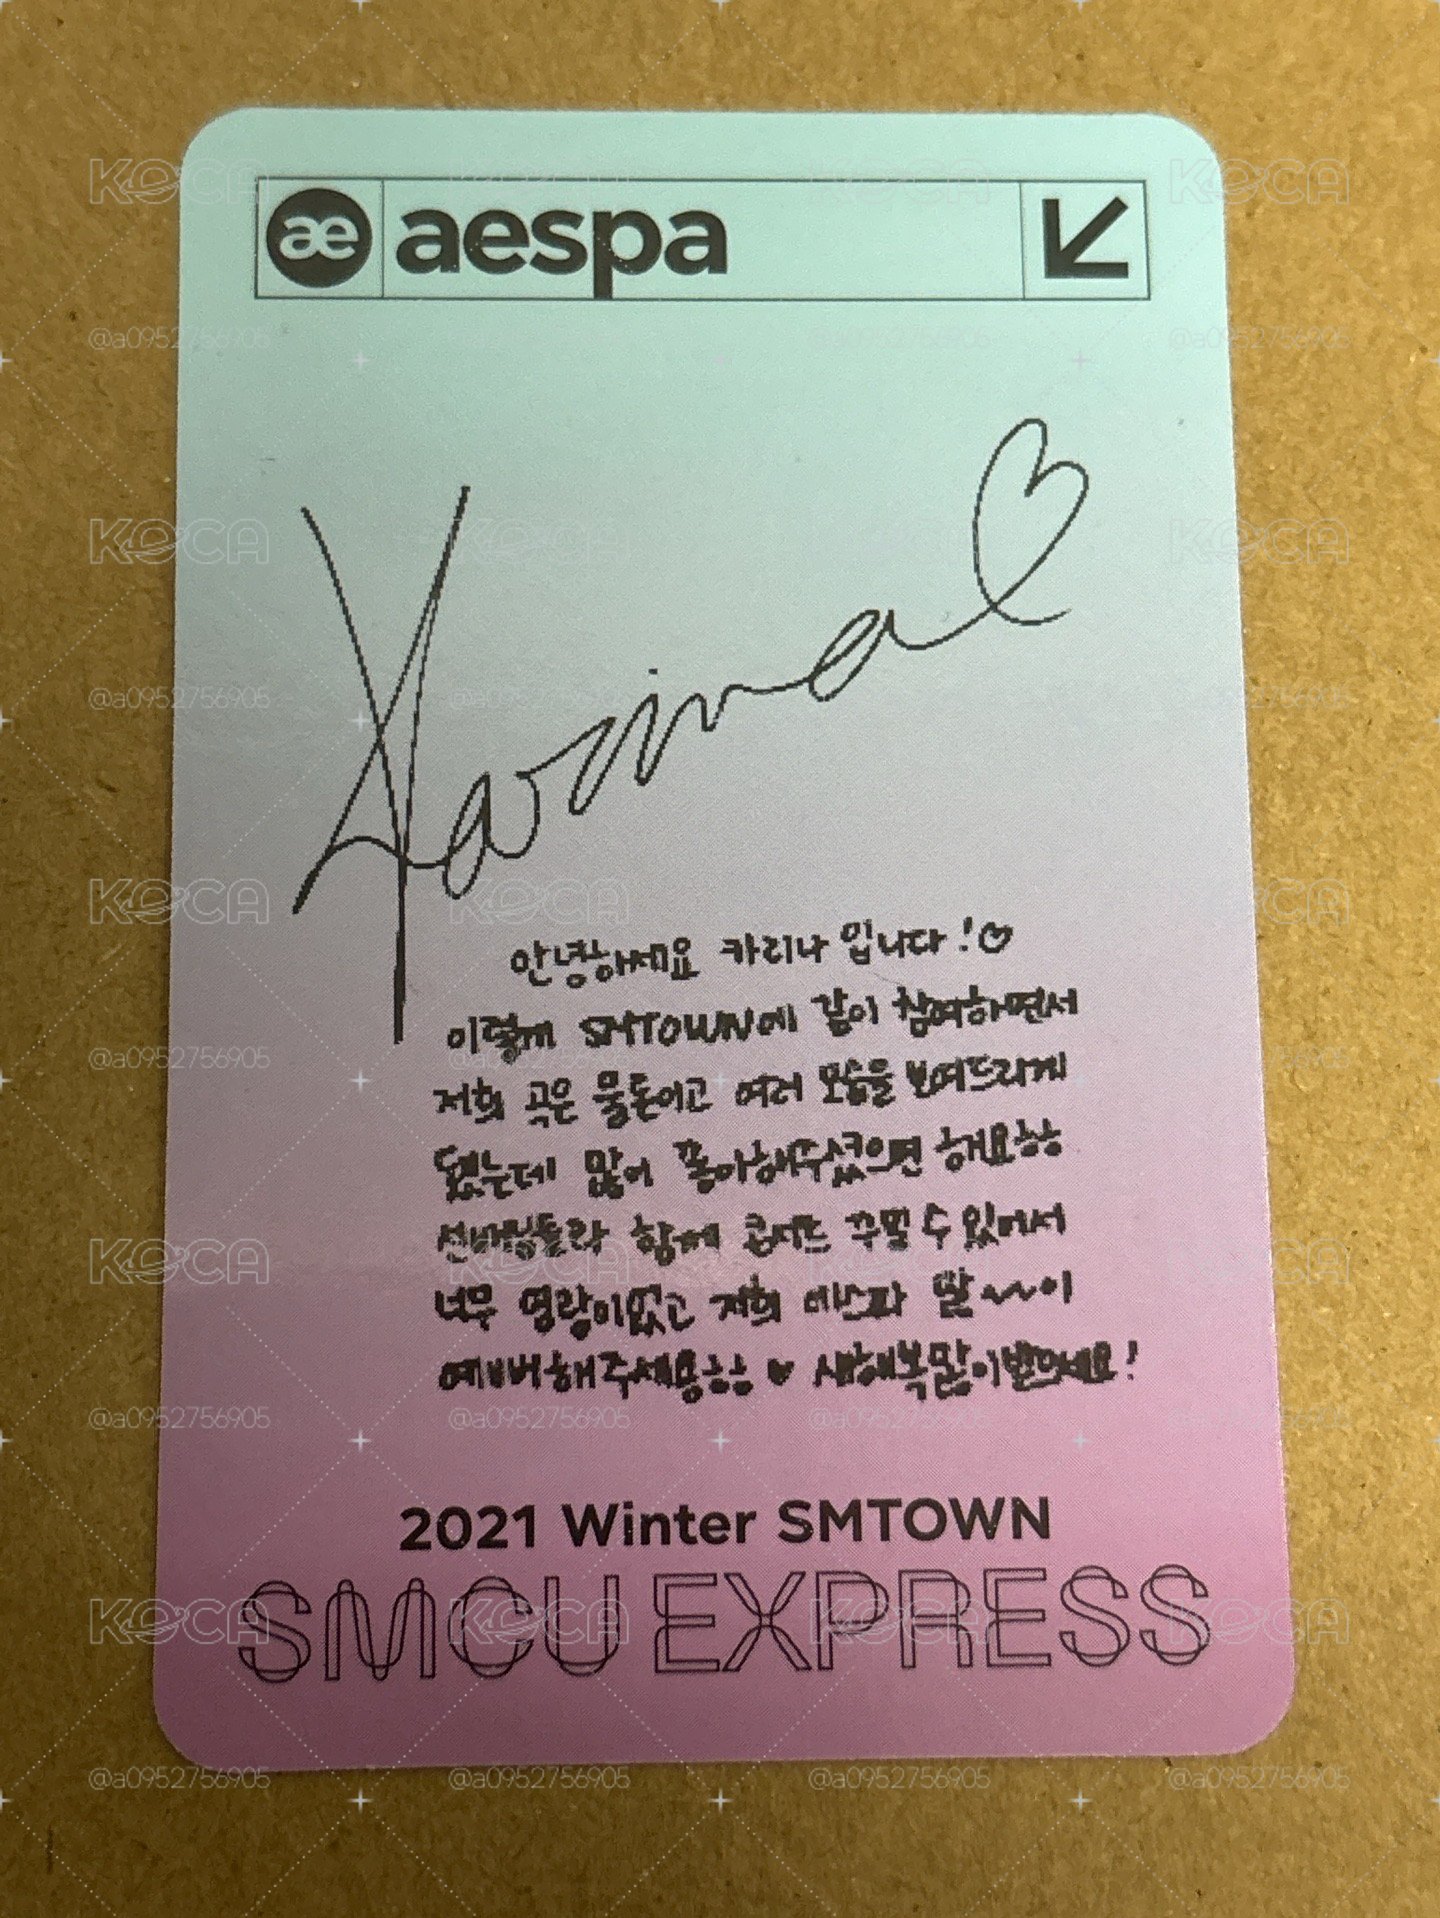 æ aespa
Karina
안녕하세요 카리나 입니다!♡
이렇게 SMTOWN에 같이 참여하면서
저희 곡은 물론이고 여러 모습을 보여드리게
됐는데 많이 좋아해주셨으면 해요ㅎㅎ
선배님들과 함께 콘서트 꾸밀 수 있어서
너무 영광이었고 저희 에스파 많~~이
예뻐해주세용ㅎㅎ ♥ 새해복많이받으세요!
2021 Winter SMTOWN
SMCU EXPRESS
KOCA
@a0952756905